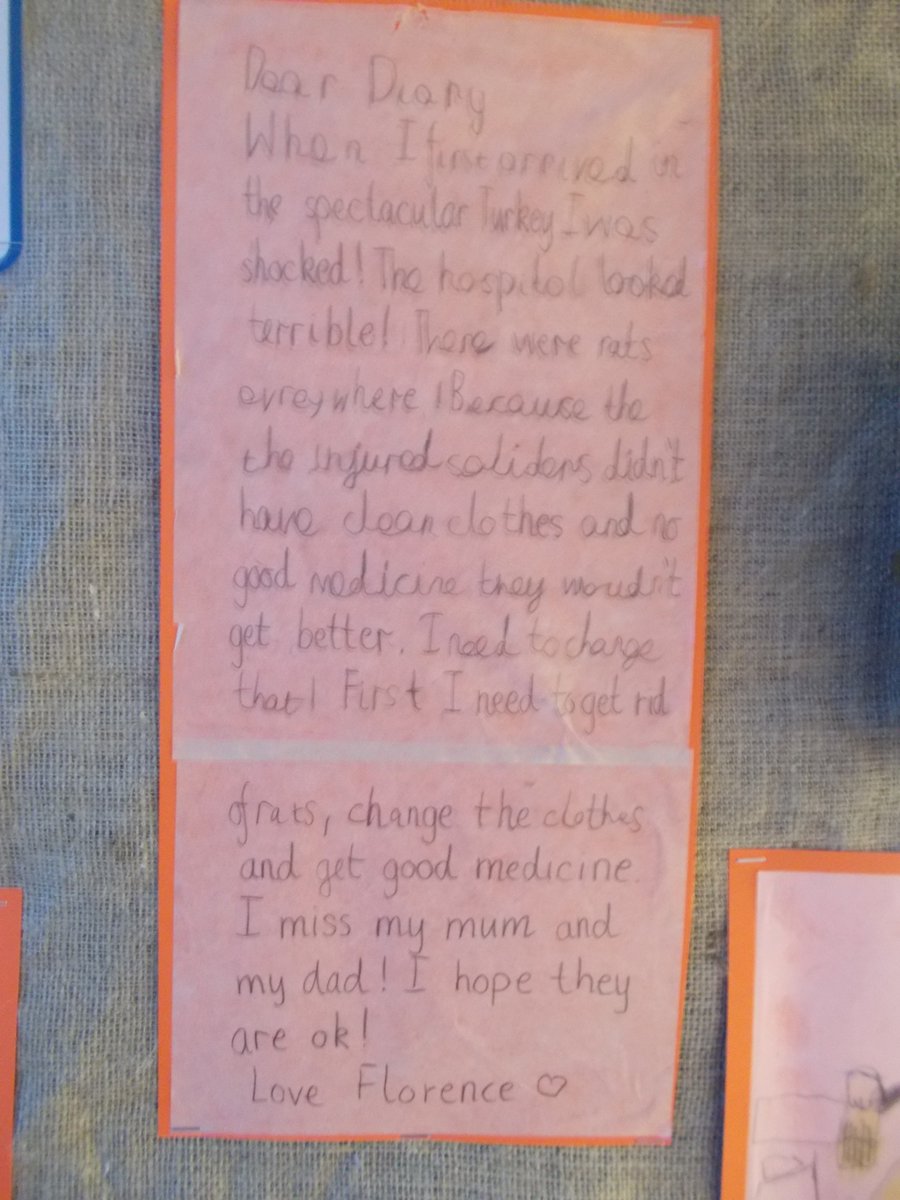 Dear Diary
When I first arrived in
the spectacular Turkey I was
shocked! The hospital looked
terrible! There were rats
evreywhere! Because the
the injured soliders didn't
have clean clothes and no
good medicine they woudn't
get better. I need to change
that! First I need to get rid
of rats, change the clothes
and get good medicine.
I miss my mum and
my dad! I hope they
are ok!
Love Florence ♡